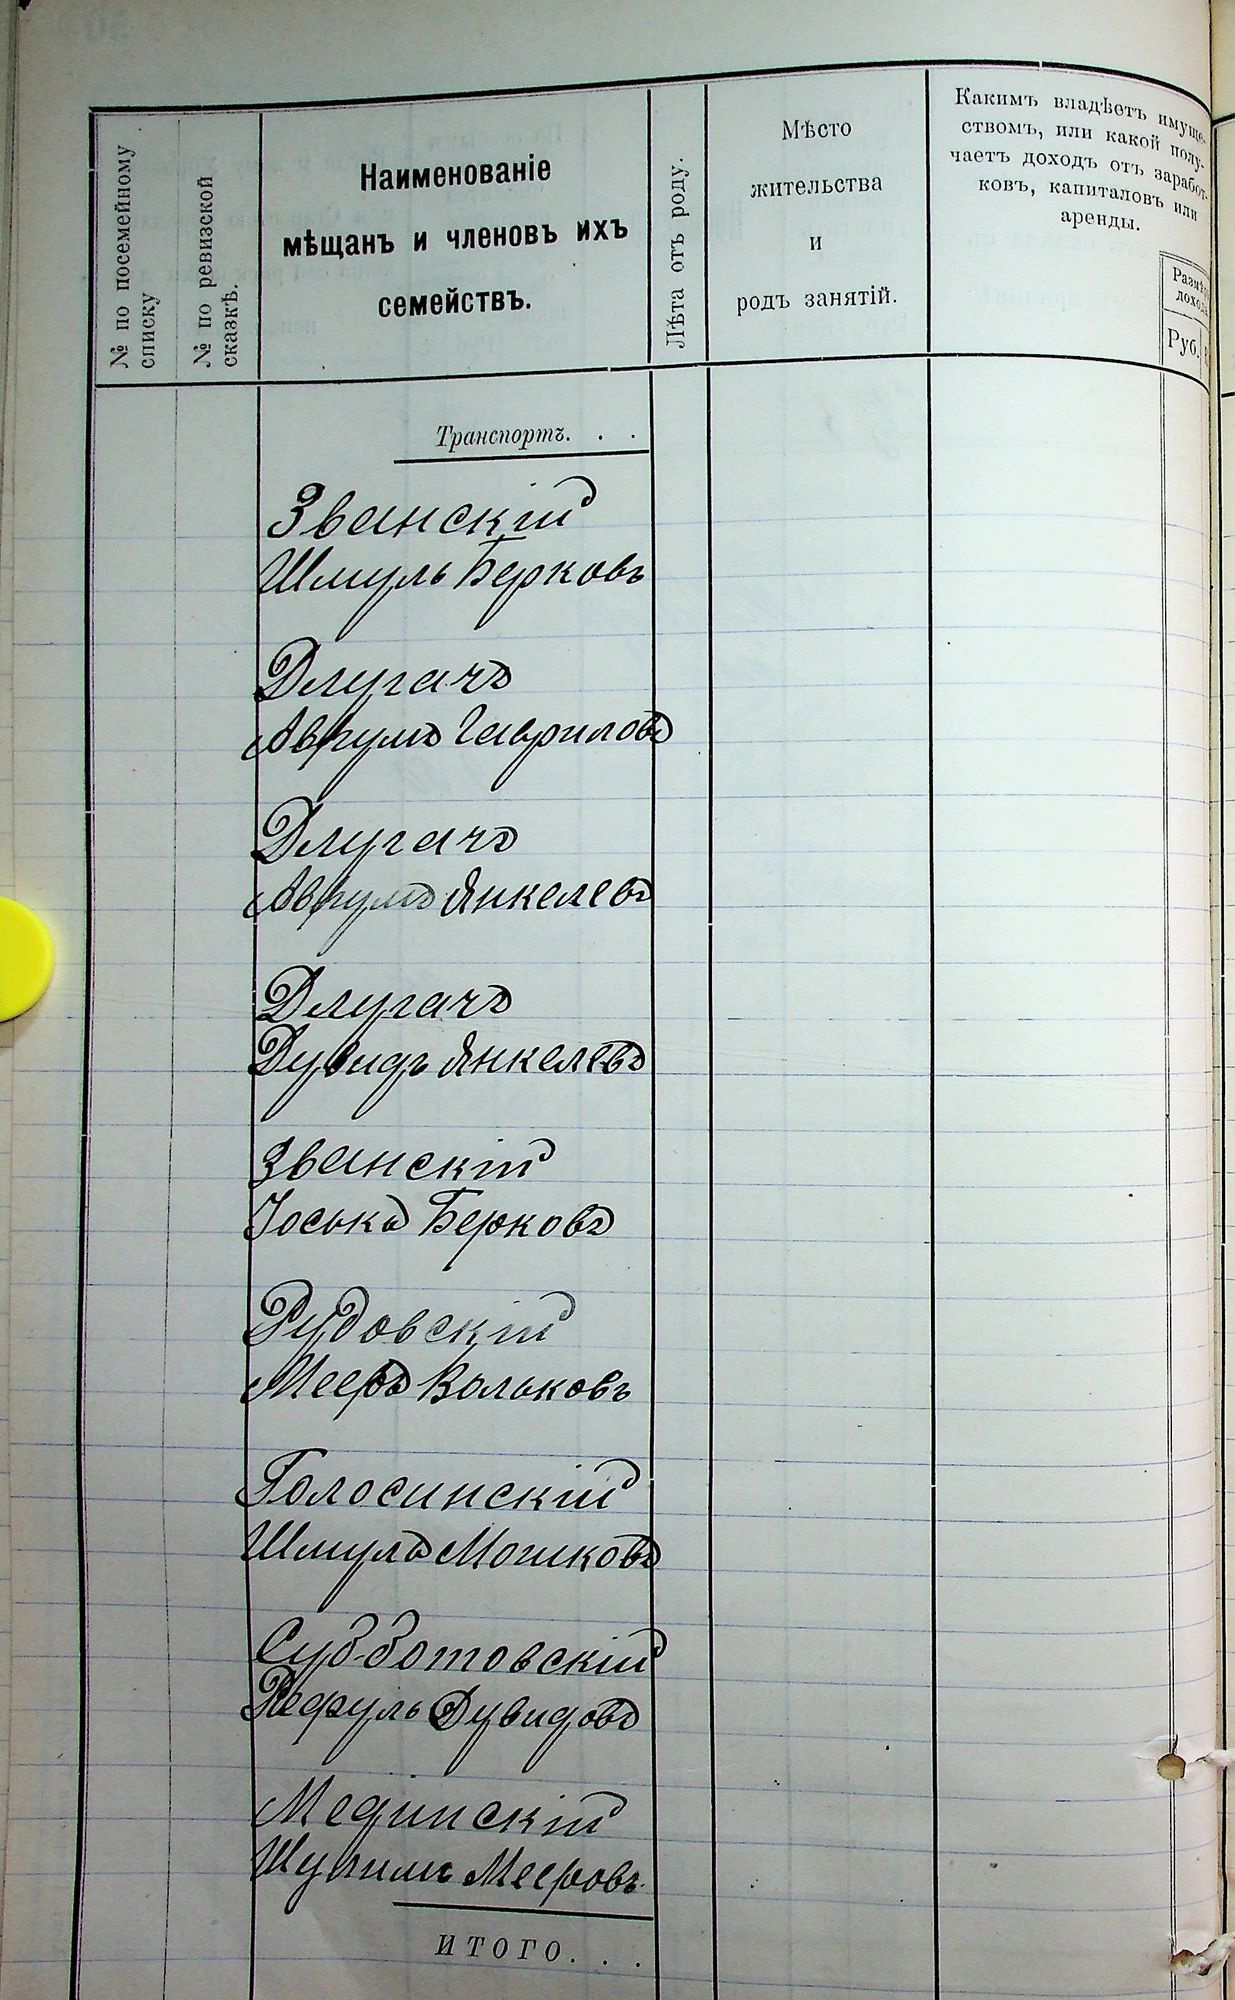 № по посемейному
списку
№ по ревизской
сказкѣ.
Наименованіе
мѣщанъ и членовъ ихъ
семействъ.
Лѣта отъ роду.
Мѣсто
жительства
и
родъ занятій.
Какимъ владѣетъ имуще-
ствомъ, или какой полу-
чаетъ доходъ отъ заработ-
ковъ, капиталовъ или
аренды.
Размѣръ
дохода
Руб.
Транспортъ. . .
Званскій
Шмуль Берковъ
Длугачъ
Аврумъ Гавриловъ
Длугачъ
Аврумъ Янкелевъ
Длугачъ
Дувидъ Янкелевъ
Званскій
Іоська Берковъ
Рудовскій
Мееръ Вольковъ
Голосинскій
Шмуль Мошковъ
Субботовскій
Рефуль Дувидовъ
Мединскій
Шулимъ Мееровъ
ИТОГО. . .